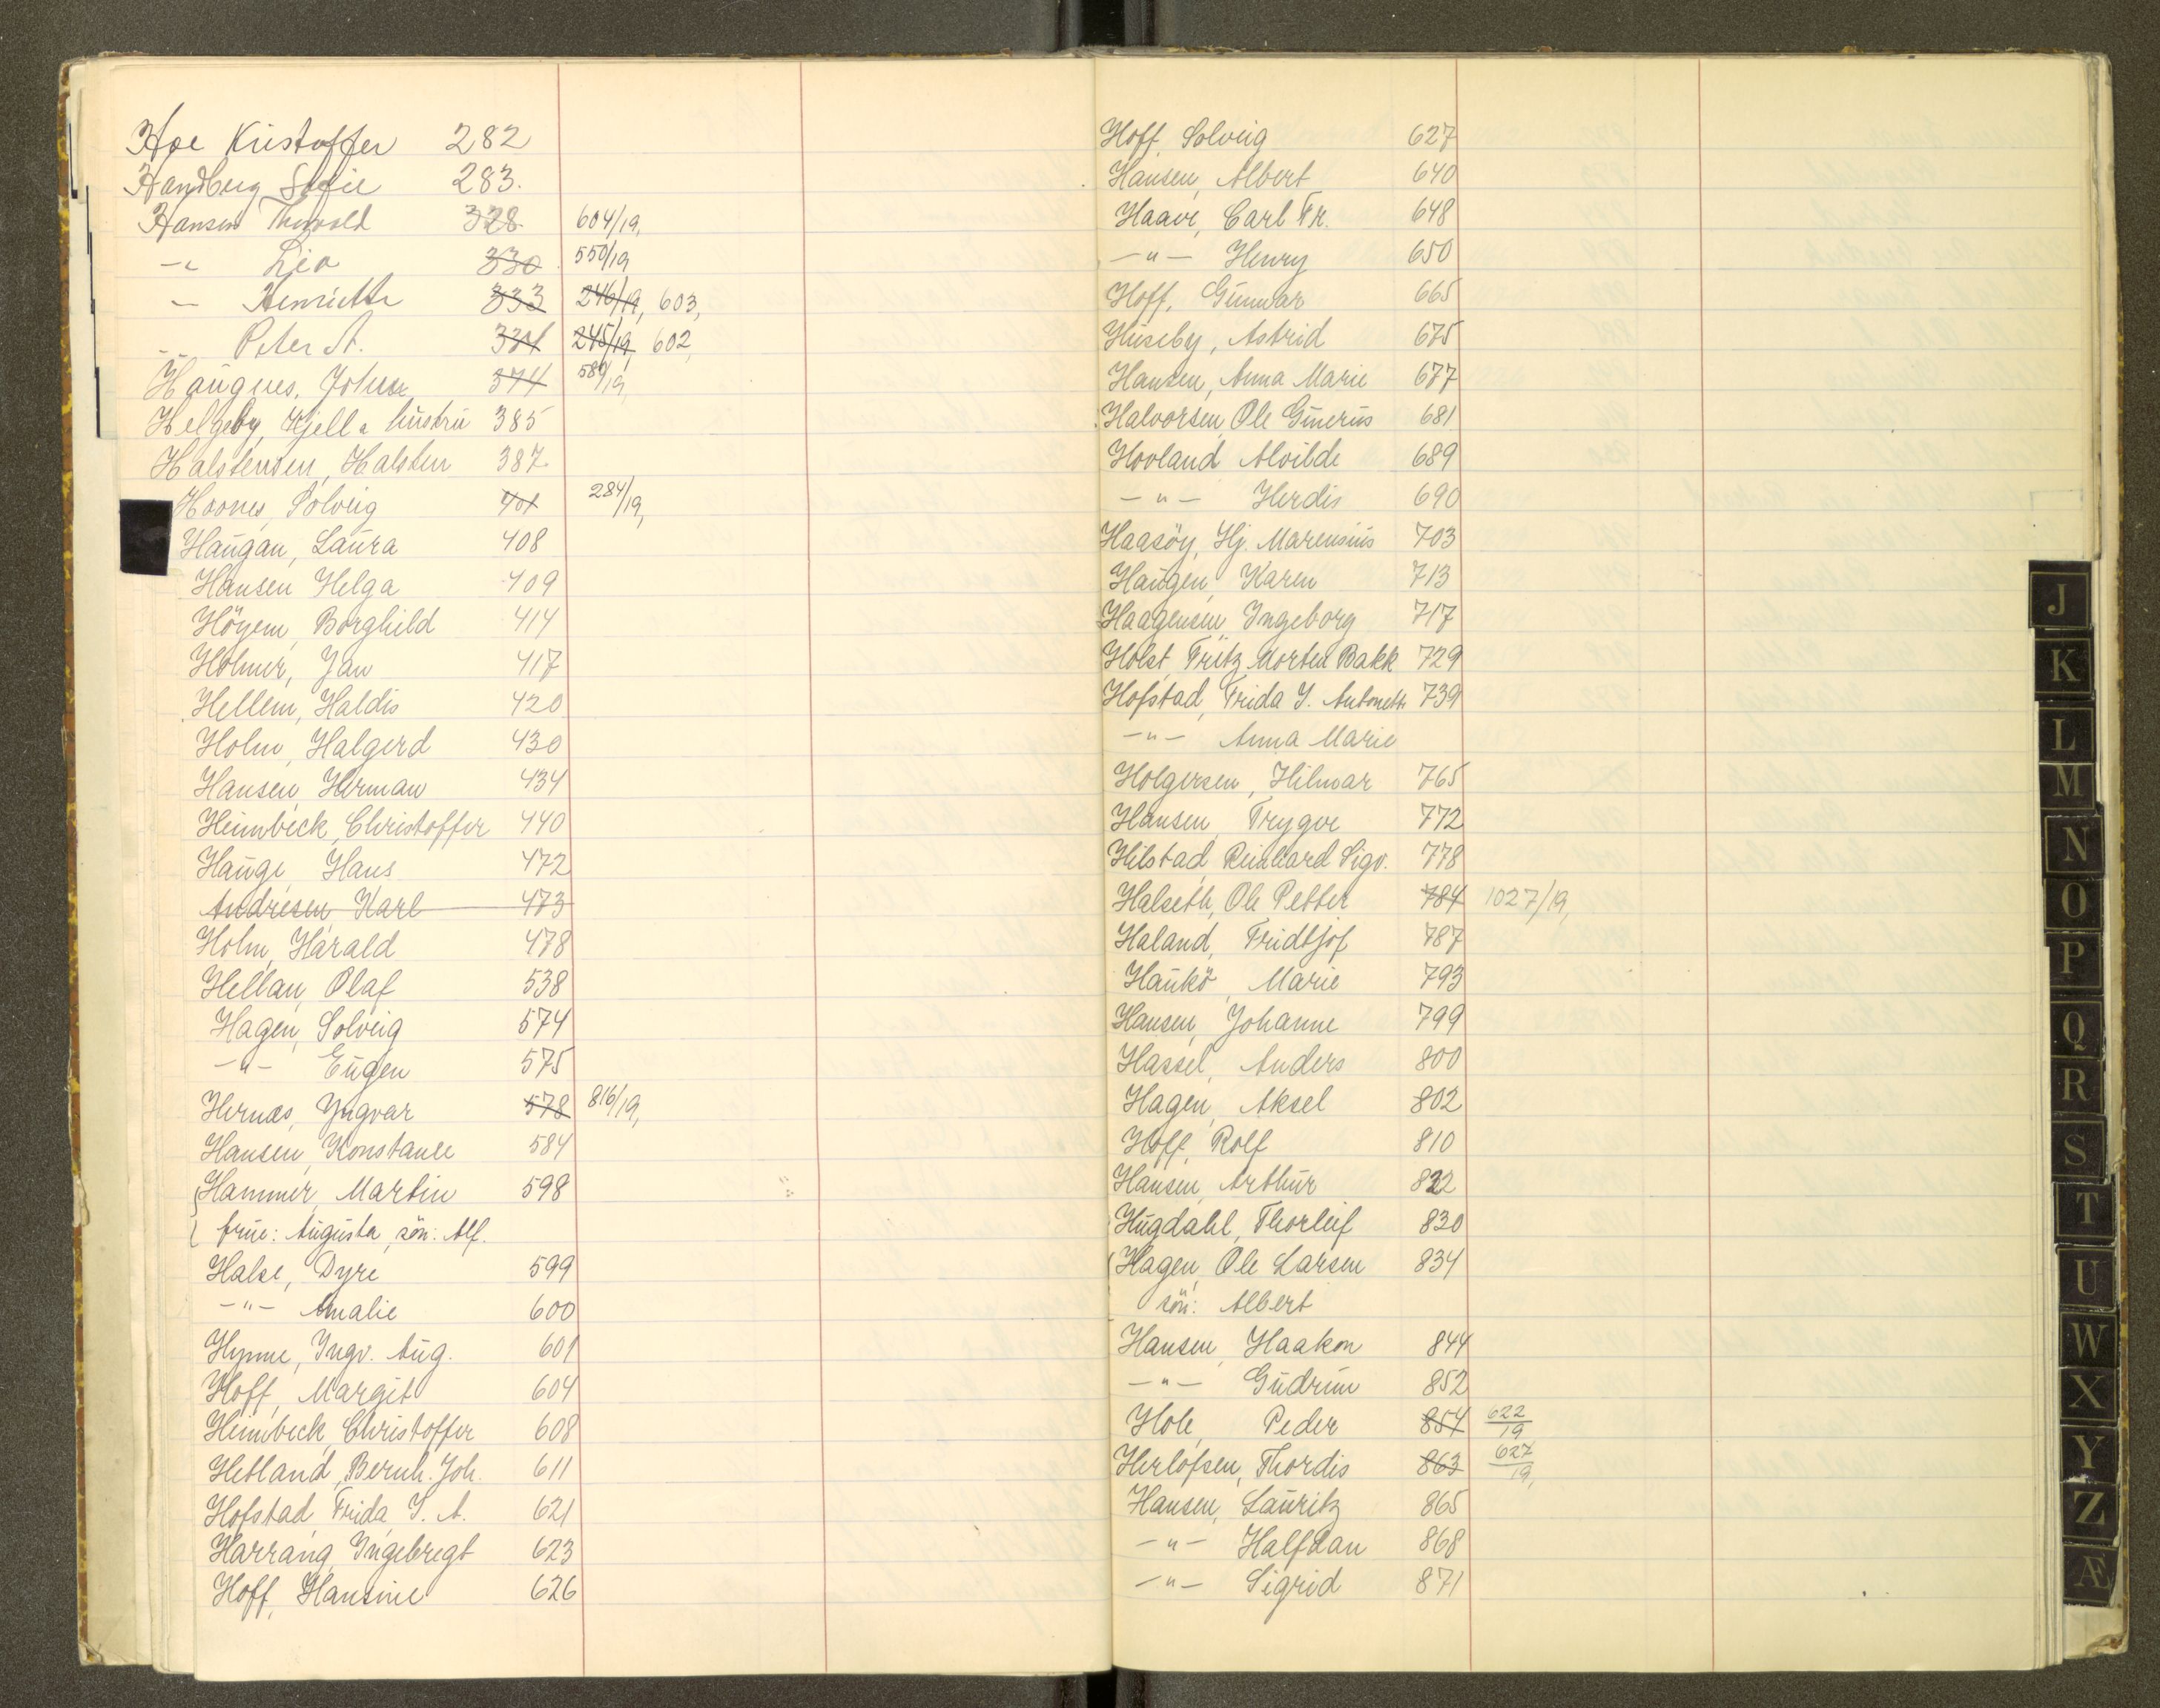 Hoe Kristoffer 282
Handberg Sofie 283.
Hansen Thorvald 328 604/19,
-"- Liv 330 550/19
- Henriette 333 246/19, 603,
-"- Peter A. 334 245/19, 602,
Haugnes, Johan 374 589/19,
Helgeby, Kjell & hustru 385
Halstensen, Halsten 387
Hoones, Solveig 401 284/19,
Haugan, Laura 408
Hansen Helga 409
Höyem, Borghild 414
Holmer, Jan 417
Hellem, Haldis 420
Holm, Halgerd 430
Hansen, Herman 434
Heimbeck, Christoffer 440
Hauge, Hans 472
Andresen Karl 473
Holm, Harald 478
Hellan, Olaf 538
Hagen, Solveig 574
-"- Eugen 575
Hernæs, Yngvar 578 816/19,
Hansen, Konstanse 584
Hammer, Martin 598
frue: Augusta, sön: Alf.
Halse, Dyre 599
-"- Amalie 600
Hynne, Ingv. Aug. 601
Hoff, Margit 604
Heimbeck, Christoffer 608
Hetland, Bernh. Joh. 611
Hofstad, Frida, J. A. 621
Harrang, Ingebregt 623
Hoff, Hansine 626
Hoff, Solveig 627
Hansen, Albert 640
Haave, Carl Fr. 648
-"- Henry 650
Hoff, Gunnar 665
Huseby, Astrid 675
Hansen, Anna Marie 677
Halvorsen, Ole Ginerius 681
Hovland, Alvilde 689
-"- Herdis 690
Haasöy, Hj. Marensius 703
Haugen, Karen 713
Haagensen, Ingeborg 717
Holst, Fritz Morten Bakk 729
Hofstad, Frida J. Antonette 739
-"- Anna Marie
Holgersen, Hilmar 765
Hansen, Trygve 772
Hilstad, Reinhard Sigv. 778
Halseth, Ole Petter 784 1027/19,
Haland, Fridtjof 787
Haukö, Marie 793
Hansen, Johanne 799
Hassel, Anders 800
Hagen, Aksel 802
Hoff, Rolf 810
Hansen, Arthur 822
Hugdahl, Thorleif 830
Hagen, Ole Larsen 834
sön: Albert
Hansen, Haakon 844
-"- Gudrun 852
Hole, Peder 854 622/19
Herlofsen, Thordis 863 627/19,
Hansen, Lauritz 865
-"- Halfdan 868
-"- Sigrid 871
J
K
L
M
N
O
P
Q
R
S
T
U
W
X
Y
Z
Æ